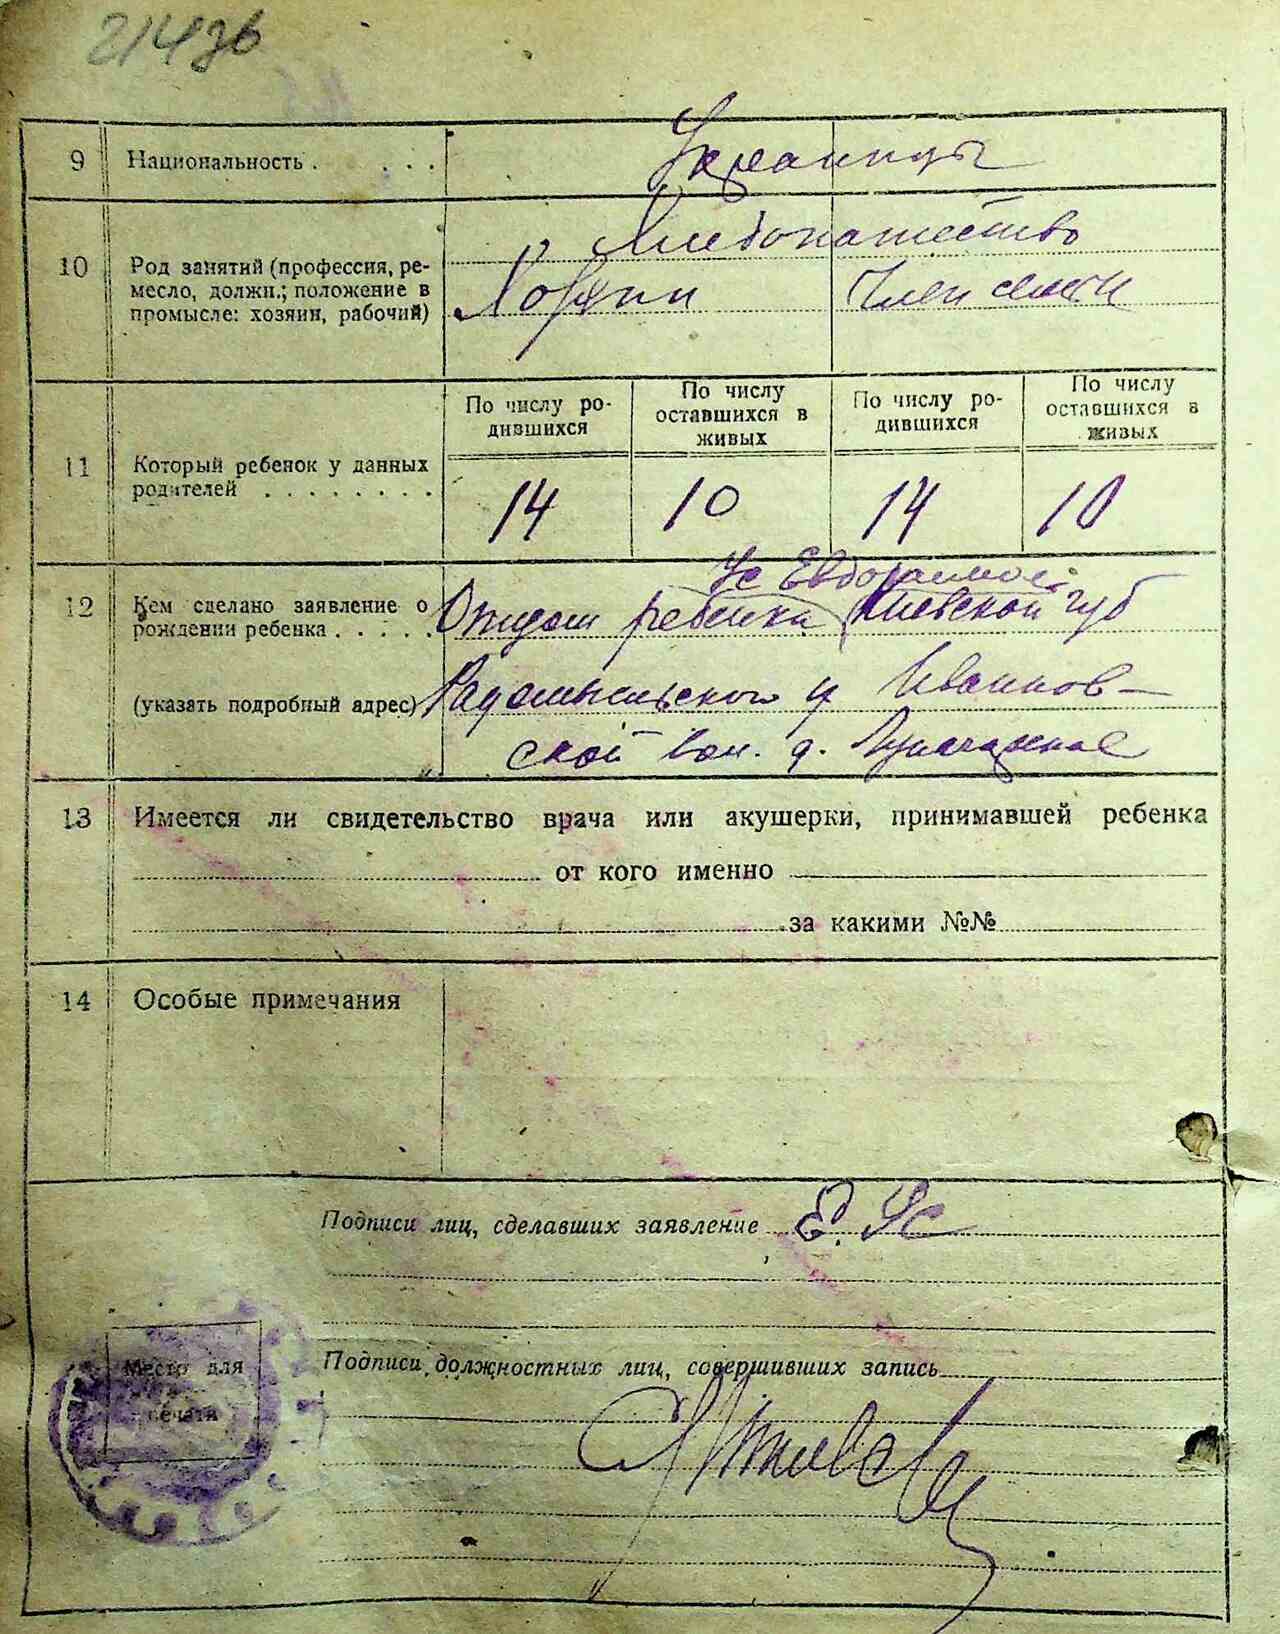 214зв
9 Национальность . . . . Украинцы
Хлебопашество
10 Род занятий (профессия, ре-
месло, должн.; положение в
промысле: хозяин, рабочий)
Хозяин Член семьи
11 Который ребенок у данных
родителей . . . . . . . .
По числу ро-
дившихся
По числу
оставшихся в
живых
По числу ро-
дившихся
По числу
оставшихся в
живых
14 10 14 10
Ус
12 Кем сделано заявление о
рождении ребенка . . . . .
Отцом ребенка Киевской губ
(указать подробный адрес) Радомысльского у Иванков-
ской вол. д.
13 Имеется ли свидетельство врача или акушерки, принимавшей ребенка
от кого именно
за какими №№
14 Особые примечания
Подписи лиц, сделавших заявление Е. Ус
Место для
печати
Подписи должностных лиц, совершивших запись